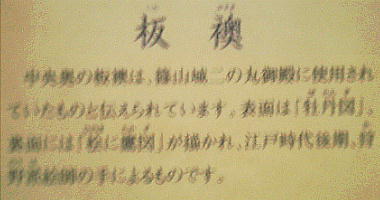 板襖
中央奥の板襖は、篠山城二の丸御殿に使用され
ていたものと伝えられています。表面は「牡丹図」、
裏面には「に鷹図」が描かれ、江戸時代後期、狩
野派絵師の手によるものです。